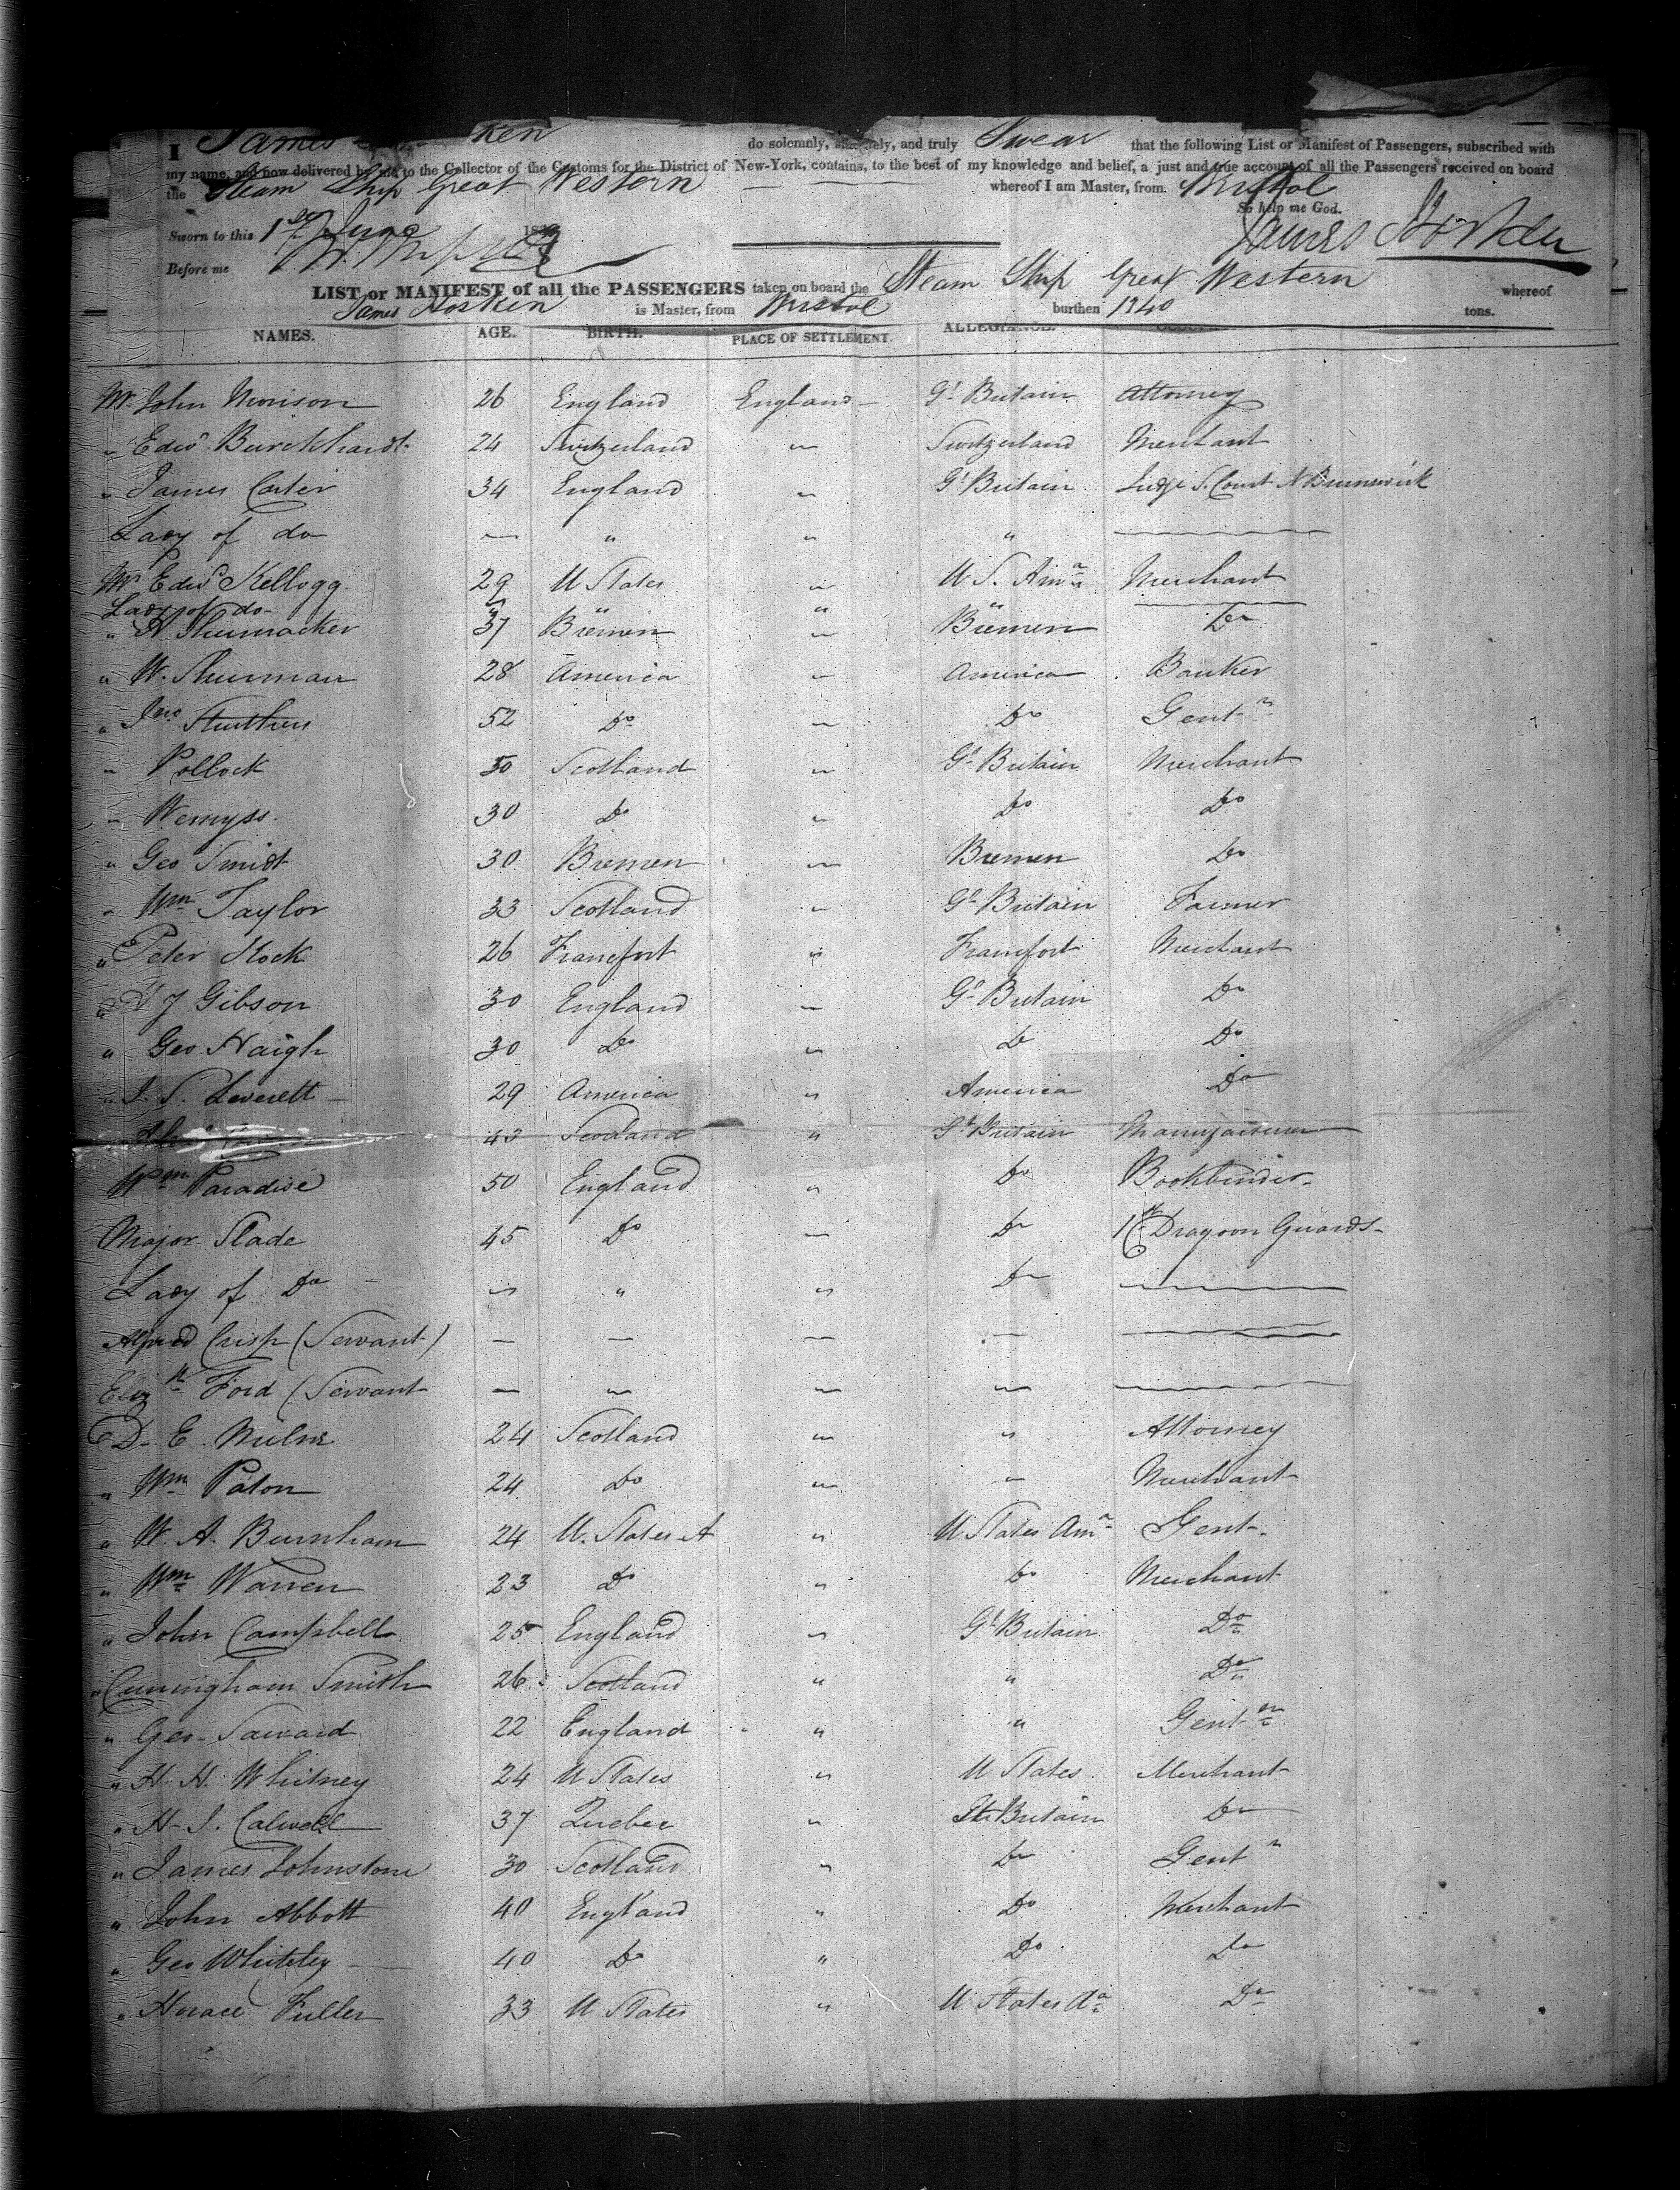 I James ken do solemnly, sincerely, and truly Swear that the following List or Manifest of Passengers, subscribed with
my name, and now delivered by me to the Collector of the Customs for the District of New-York, contains, to the best of my knowledge and belief, a just and true account of all the Passengers received on board
the Steam Ship Great Western whereof I am Master, from Bristol
So help me God.
Sworn to this 1st June 183 James Hosken
Before me
LIST or MANIFEST of all the PASSENGERS taken on board the Steam Ship Great Western whereof
James Hosken is Master, from Bristol burthen 1340 tons.
NAMES. AGE. BIRTH. PLACE OF SETTLEMENT. ALLEGIANCE.
Mr John Morison 26 England England Gt Britain Attorney
" Edwd Burckhardt 24 Switzerland " Switzerland Merchant
" James Carter 34 England " Gt Britain Judge S. Court N Brunswick
Lady of do — " " "
Mr Edwd Kellogg 29 U States " U S. Ama Merchant
Lady of do " " " "
" H Shumacker 37 Bremen " Bremen Do
" W. Shuman 28 America " America Banker
" Jno Struthers 52 Do " Do Gentn
" Pollock 50 Scotland " Gt Britain Merchant
" Wemyss 30 Do " Do Do
" Geo Smidt 30 Bremen " Bremen Do
" Wm Taylor 33 Scotland " Gt Britain Farmer
" Peter Hock 26 Francfort " Francfort Merchant
" J Gibson 30 England " Gt Britain Do
" Geo Haigh 30 Do " Do Do
" J. S. Leverett 29 America " America Do
43 Scotland " Gt Britain Manufacturer
Wm Paradise 50 England " Do Bookbinder
Major Slade 45 Do " Do 1st Dragoon Guards
Lady of Do " " " Do
Alfred Crisp (Servant) — — — —
Elizth Ford (Servant — " " "
D. E. Milne 24 Scotland " " Attorney
" Wm Paton 24 Do " " Merchant
" W. A. Burnham 24 U. States A " U States Ama Gent.
" Wm Warren 23 Do " Do Merchant
" John Campbell 25 England " Gt Britain Do
" Cuningham Smith 26 Scotland " " Do
" Geo Saward 22 England " " Gentn
" H. H. Whitney 24 U States " U States Merchant
" H. J. Calwell 37 Quebec " Gt Britain Do
" James Johnstone 30 Scotland " Do Gentn
" John Abbott 40 England " Do Merchant
" Geo Whiteley 40 Do " Do Do
" Horace Fuller 33 U States " U States Aa Do